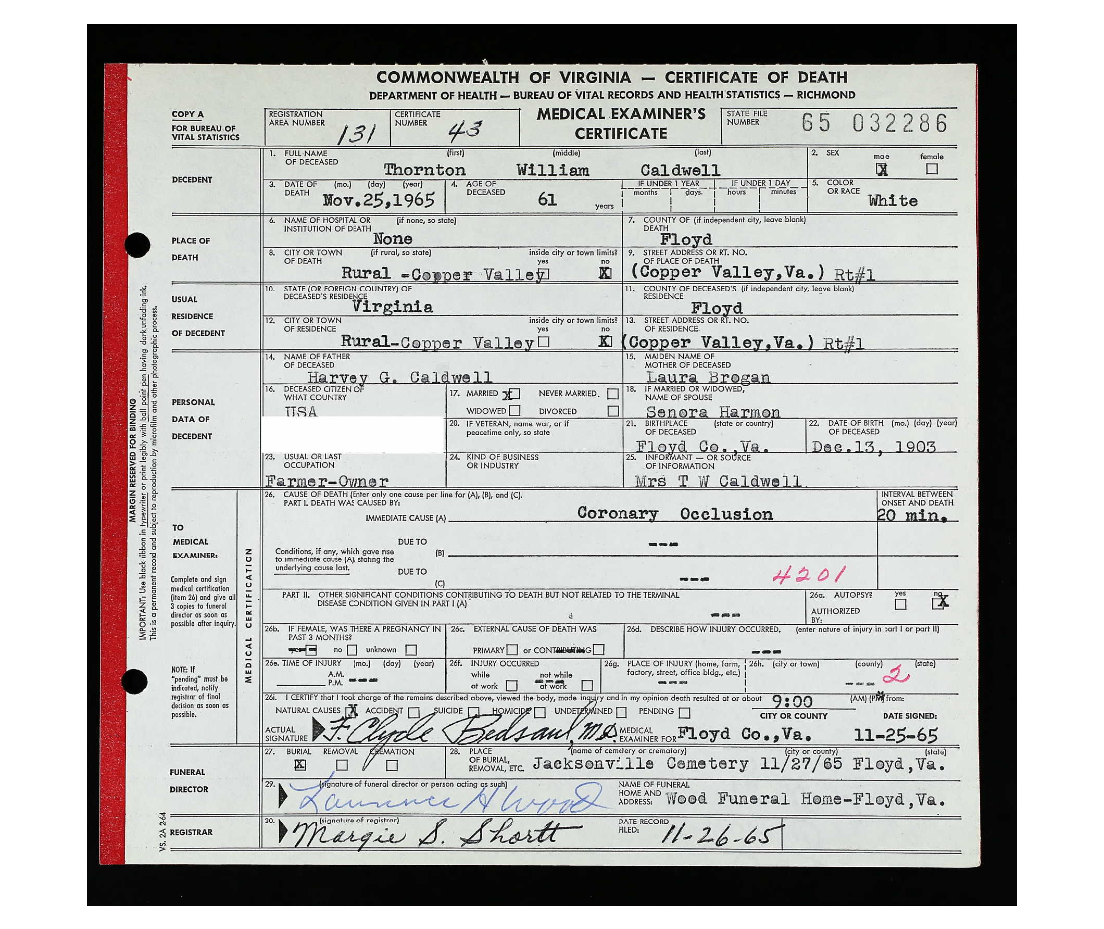 COMMONWEALTH OF VIRGINIA — CERTIFICATE OF DEATH
DEPARTMENT OF HEALTH — BUREAU OF VITAL RECORDS AND HEALTH STATISTICS — RICHMOND
COPY A
FOR BUREAU OF
VITAL STATISTICS
REGISTRATION
AREA NUMBER 131
CERTIFICATE
NUMBER 43
MEDICAL EXAMINER'S
CERTIFICATE
STATE FILE
NUMBER 65 032286
DECEDENT
1. FULL NAME (first) (middle) (last)
OF DECEASED
Thornton William Caldwell
2. SEX
male female
X
3. DATE OF (mo.) (day) (year)
DEATH Nov.25,1965
4. AGE OF
DECEASED 61 years
IF UNDER 1 YEAR IF UNDER 1 DAY
months days hours minutes
5. COLOR
OR RACE White
PLACE OF
DEATH
6. NAME OF HOSPITAL OR (if none, so state)
INSTITUTION OF DEATH
None
7. COUNTY OF (if independent city, leave blank)
DEATH
Floyd
8. CITY OR TOWN (if rural, so state) inside city or town limits?
OF DEATH yes no
Rural -Copper Valley X
9. STREET ADDRESS OR RT. NO.
OF PLACE OF DEATH
(Copper Valley,Va.) Rt#1
USUAL
RESIDENCE
OF DECEDENT
10. STATE (OR FOREIGN COUNTRY) OF
DECEASED'S RESIDENCE
Virginia
11. COUNTY OF DECEASED'S (if independent city, leave blank)
RESIDENCE
Floyd
12. CITY OR TOWN inside city or town limits?
OF RESIDENCE yes no
Rural-Copper Valley X
13. STREET ADDRESS OR RT. NO.
OF RESIDENCE
(Copper Valley,Va.) Rt#1
PERSONAL
DATA OF
DECEDENT
14. NAME OF FATHER
OF DECEASED
Harvey G. Caldwell
15. MAIDEN NAME OF
MOTHER OF DECEASED
Laura Brogan
16. DECEASED CITIZEN OF
WHAT COUNTRY
USA
17. MARRIED X NEVER MARRIED
WIDOWED DIVORCED
18. IF MARRIED OR WIDOWED,
NAME OF SPOUSE
Senora Harmon
20. IF VETERAN, name war, or if
peacetime only, so state
21. BIRTHPLACE (state or country)
OF DECEASED
Floyd Co.,Va.
22. DATE OF BIRTH (mo.) (day) (year)
OF DECEASED
Dec.13, 1903
23. USUAL OR LAST
OCCUPATION
Farmer-Owner
24. KIND OF BUSINESS
OR INDUSTRY
25. INFORMANT — OR SOURCE
OF INFORMATION
Mrs T W Caldwell
MARGIN RESERVED FOR BINDING
IMPORTANT: Use black ribbon in typewriter or print legibly with ball point pen having dark unfading ink.
This is a permanent record and subject to reproduction by microfilm and other photographic process.
TO
MEDICAL
EXAMINER:
Complete and sign
medical certification
(item 26) and give all
3 copies to funeral
director as soon as
possible after inquiry.
NOTE: If
"pending" must be
indicated, notify
registrar of final
decision as soon as
possible.
MEDICAL CERTIFICATION
26. CAUSE OF DEATH (Enter only one cause per line for (A), (B), and (C).
PART I. DEATH WAS CAUSED BY:
INTERVAL BETWEEN
ONSET AND DEATH
IMMEDIATE CAUSE (A) Coronary Occlusion 20 min.
DUE TO ---
(B)
Conditions, if any, which gave rise
to immediate cause (A) stating the
underlying cause last.
DUE TO ---
(C)
4201
PART II. OTHER SIGNIFICANT CONDITIONS CONTRIBUTING TO DEATH BUT NOT RELATED TO THE TERMINAL
DISEASE CONDITION GIVEN IN PART I (A)
---
26a. AUTOPSY? yes no
X
AUTHORIZED
BY:
26b. IF FEMALE, WAS THERE A PREGNANCY IN
PAST 3 MONTHS?
yes no unknown
26c. EXTERNAL CAUSE OF DEATH WAS
PRIMARY or CONTRIBUTING
26d. DESCRIBE HOW INJURY OCCURRED, (enter nature of injury in part I or part II)
---
26e. TIME OF INJURY (mo.) (day) (year)
A.M.
P.M. ---
26f. INJURY OCCURRED
while not while
at work at work
26g. PLACE OF INJURY (home, farm,
factory, street, office bldg., etc.)
---
26h. (city or town) (county) (state)
--- 2
26i. I CERTIFY that I took charge of the remains described above, viewed the body, made inquiry and in my opinion death resulted at or about 9:00 (AM) (PM) from:
NATURAL CAUSES X ACCIDENT SUICIDE HOMICIDE UNDETERMINED PENDING
CITY OR COUNTY DATE SIGNED:
ACTUAL
SIGNATURE F. Clyde Bedsaul, M.D.
MEDICAL
EXAMINER FOR Floyd Co.,Va. 11-25-65
FUNERAL
DIRECTOR
27. BURIAL REMOVAL CREMATION
X
28. PLACE (name of cemetery or crematory) (city or county) (state)
OF BURIAL,
REMOVAL, ETC. Jacksonville Cemetery 11/27/65 Floyd,Va.
29. (signature of funeral director or person acting as such)
Lawrence H Wood
NAME OF FUNERAL
HOME AND
ADDRESS: Wood Funeral Home-Floyd,Va.
REGISTRAR
30. (signature of registrar)
Margie S. Shortt
DATE RECORD
FILED: 11-26-65
VS. 2A 2-64